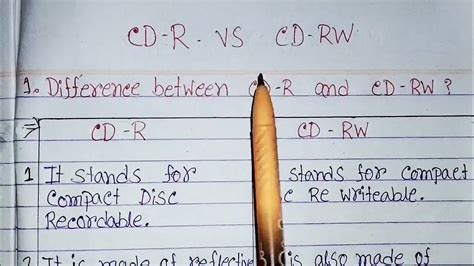 CD-R. VS CD-RW
1. Difference between CD-R and CD-RW ?
CD-R
CD-RW
1 It stands for
Compact Disc
Recordable.
stands for Compact
Re Writeable.
It is made of reflective
is also made of